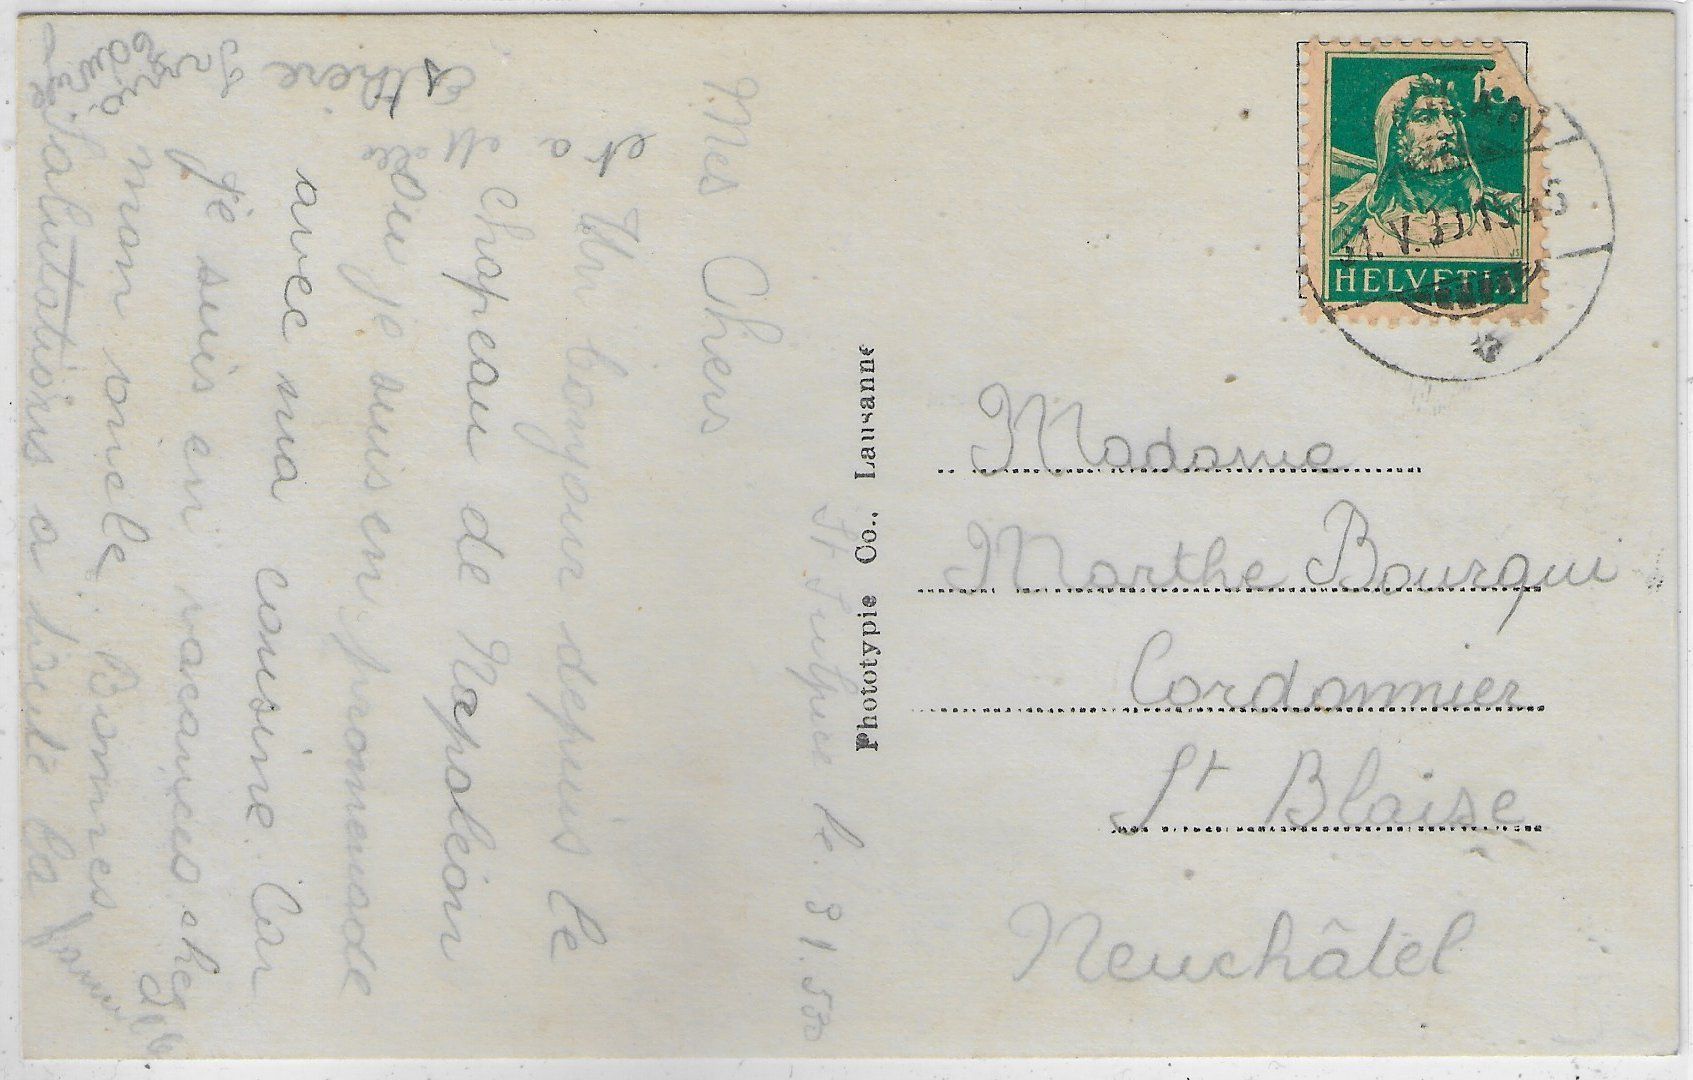 St Sulpice le. 31.5.30
Mes Chers
Un bonjour depuis le
chapeau de Napoléon
ou je suis en promenade
avec ma cousine. Car
Je suis en vacances. chez
mon oncle. Bonnes
Salutations a toute la famille
et a
Phototypie Co., Lausanne
HELVETIA
Madame
Marthe Bourqui
Cordonnier
St Blaise
Neuchâtel